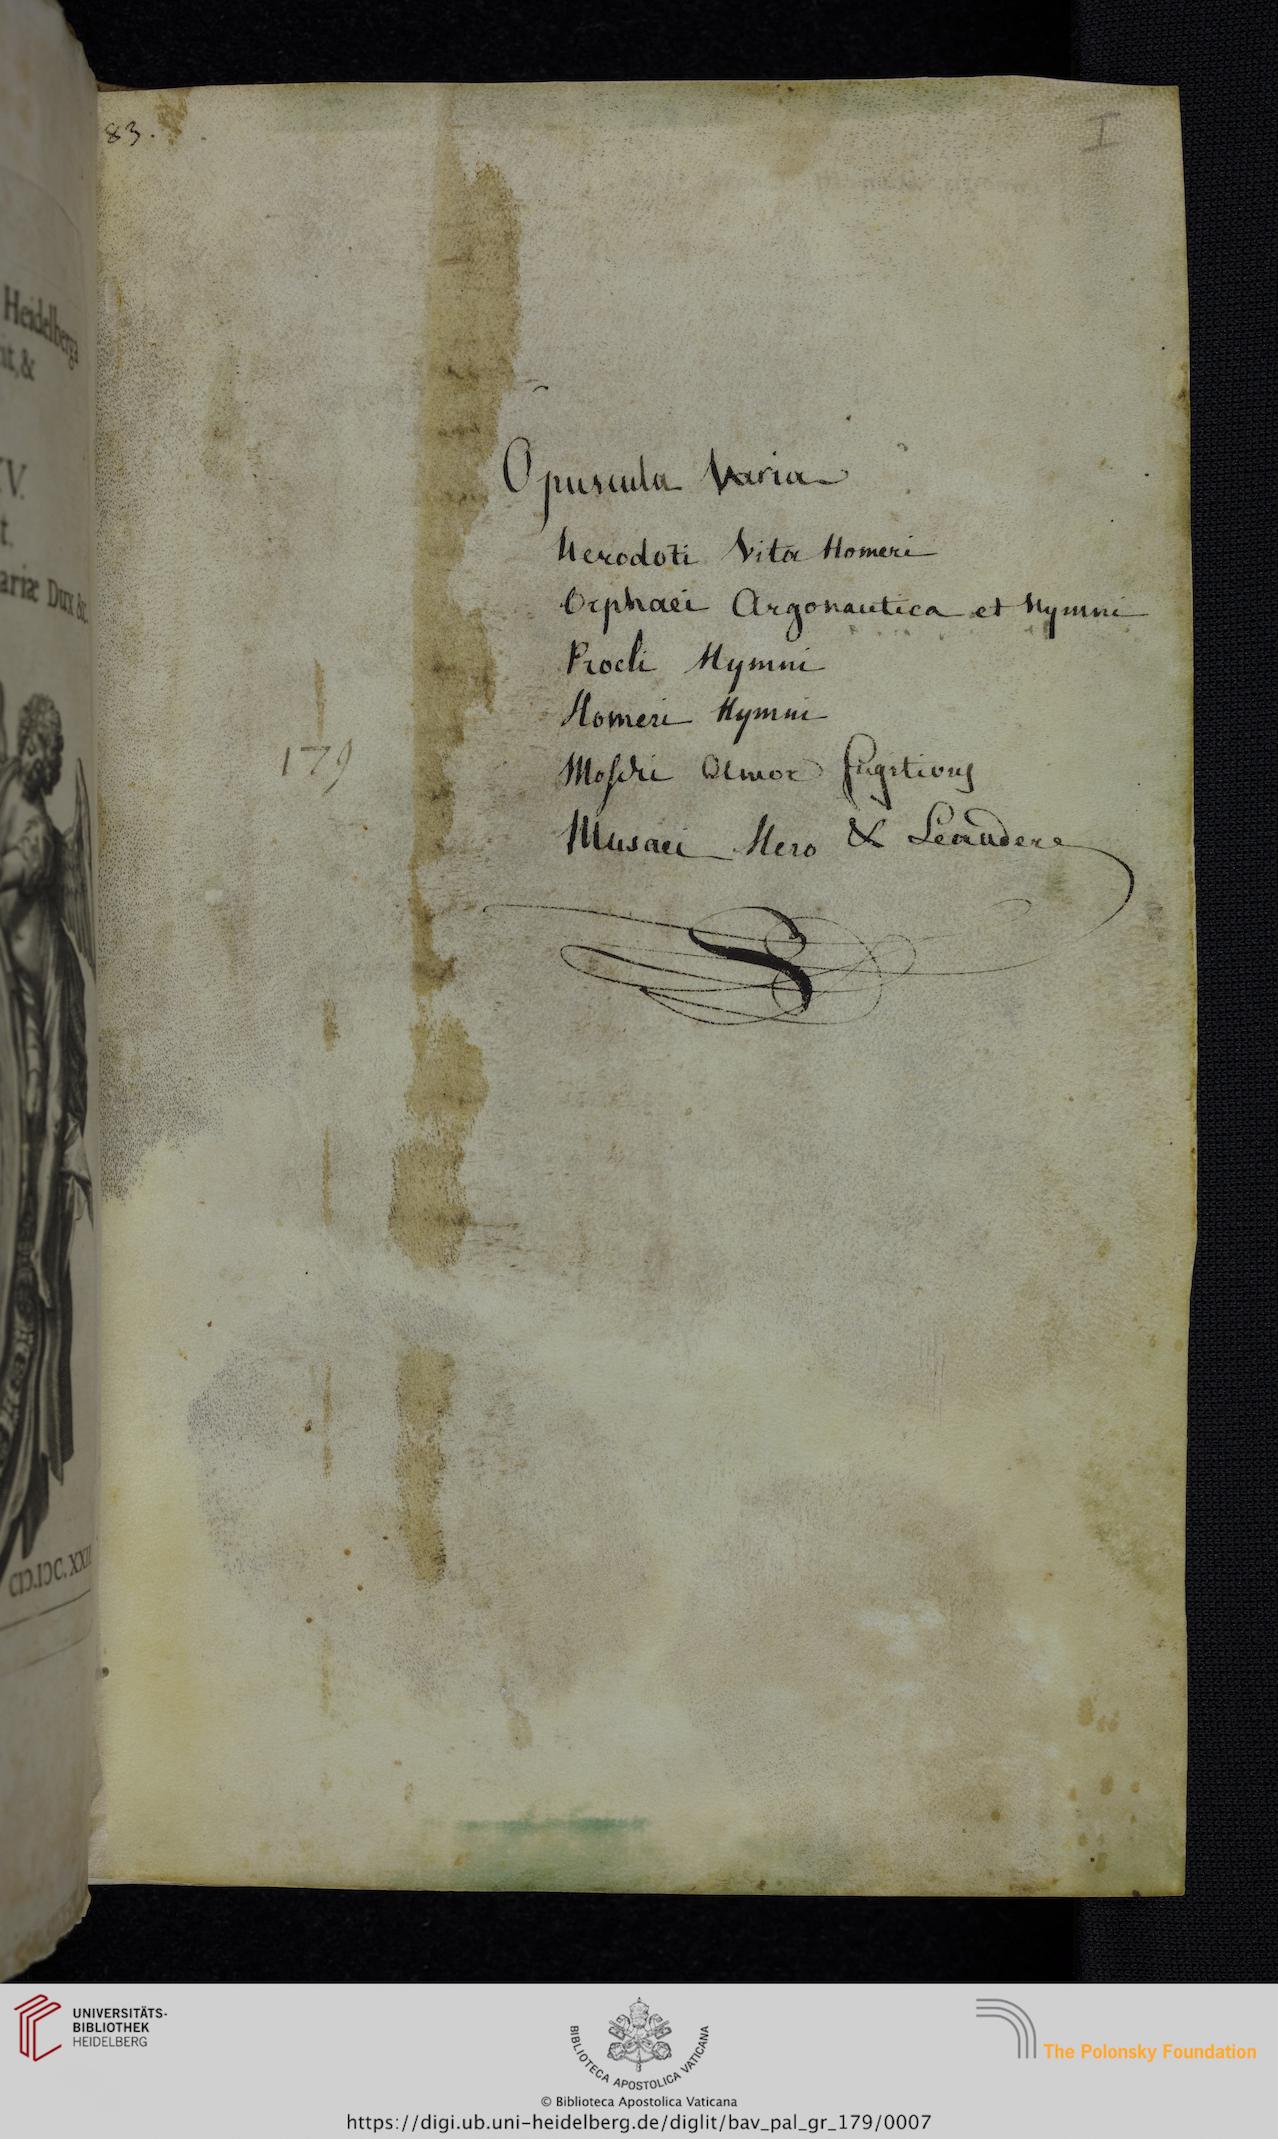 Heidelberga
it, &
V.
t.
ariæ Dux &c.
CIƆ.IƆC.XXII
83.
I
Opuscula Varia
Herodoti Vita Homeri
Orphaei Argonautica et Hymni
Procli Hymni
Homeri Hymni
179
Moschi Amor fugitivus
Musaei Hero & Leandere
UNIVERSITÄTS-
BIBLIOTHEK
HEIDELBERG
BIBLIOTECA APOSTOLICA VATICANA
© Biblioteca Apostolica Vaticana
The Polonsky Foundation
https://digi.ub.uni-heidelberg.de/diglit/bav_pal_gr_179/0007